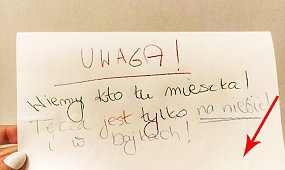 UWAGA!
Wiemy kto tu mieszka!
Tęcza jest tylko na niebie
i w bajkach!